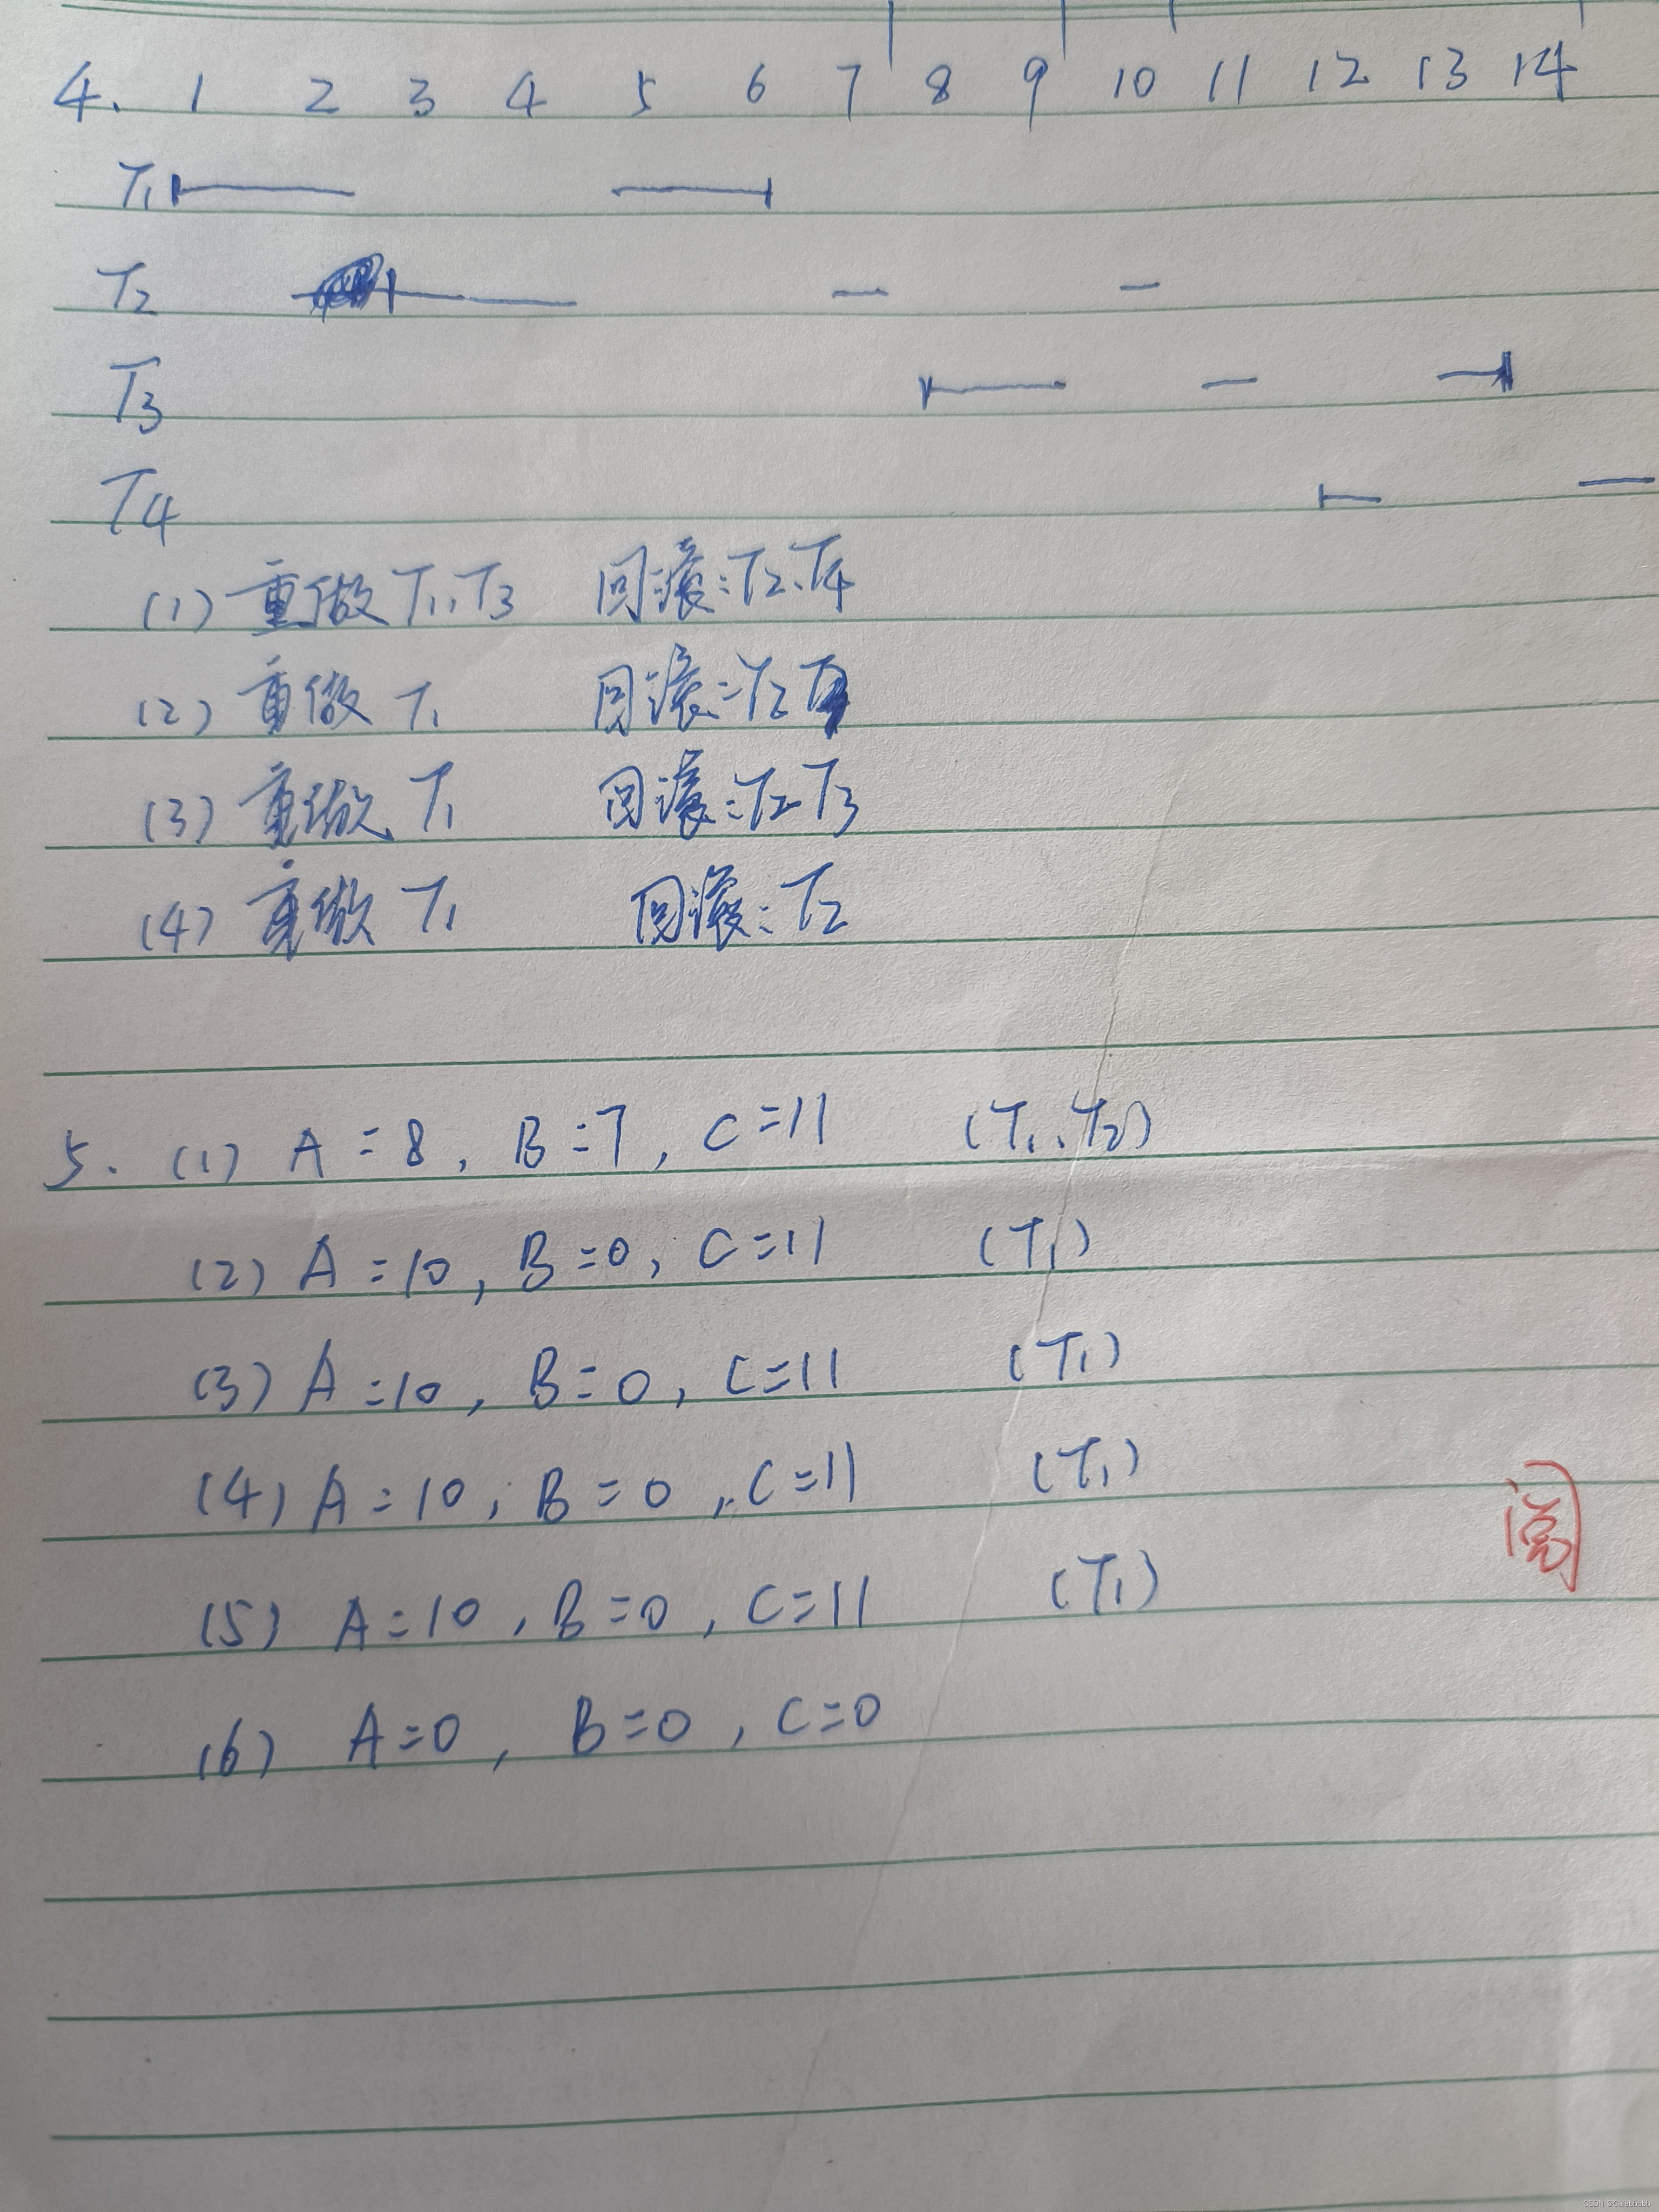 4. 1 2 3 4 5 6 7 8 9 10 11 12 13 14
T1
T2
T3
T4
(1) 重做 T1, T3 回滚: T2、T4
(2) 重做 T1 回滚: T2
(3) 重做 T1 回滚: T2 T3
(4) 重做 T1 回滚: T2
5. (1) A=8, B=7, C=11 (T1、T2)
(2) A=10, B=0, C=11 (T1)
(3) A=10, B=0, C=11 (T1)
(4) A=10, B=0, C=11 (T1)
阅
(5) A=10, B=0, C=11 (T1)
(6) A=0, B=0, C=0
CSDN @Calebbbbb